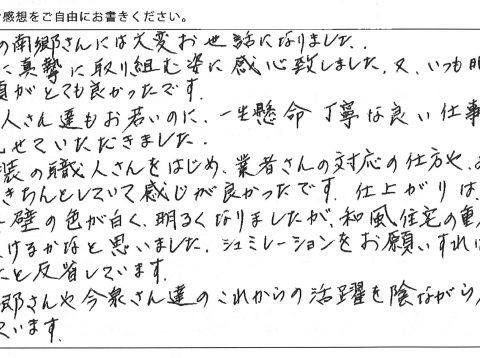 感想をご自由にお書きください。
の南郷さんには大変お世話になりました。
に真摯に取り組む姿に感心致しました。又、いつも明
顔がとても良かったです。
人さん達もお若いのに、一生懸命 丁寧な良い仕事
せていただきました。
装の職人さんをはじめ、業者さんの対応の仕方や、
きちんとしていて感じが良かったです。仕上がりは、
壁の色が白く、明るくなりましたが、和風住宅の重
けるかなと思いました。シュミレーションをお願いすれば
たと反省しています。
郷さんや今泉さん達のこれからの活躍を陰ながら
ています。